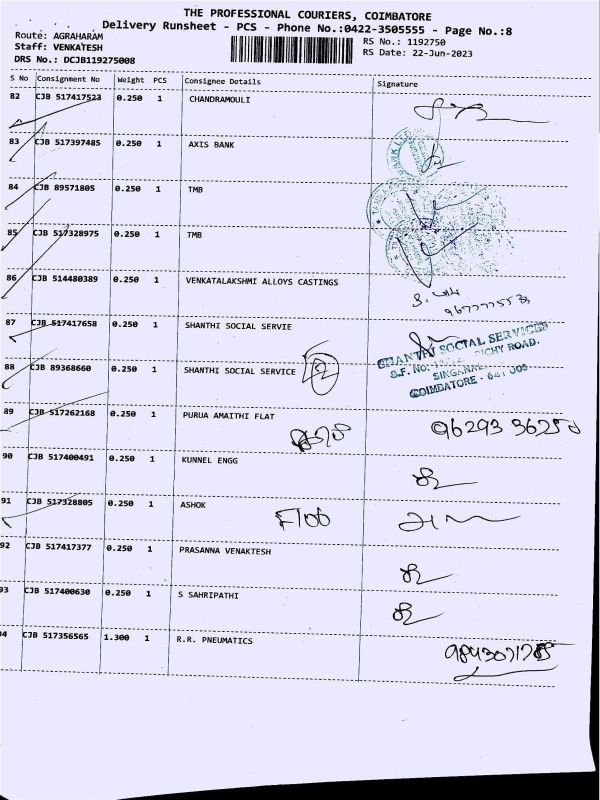 THE PROFESSIONAL COURIERS, COIMBATORE
Delivery Runsheet - PCS - Phone No.:0422-3505555 - Page No.:8
Route: AGRAHARAM
Staff: VENKATESH
DRS No.: DCJB119275008
RS No.: 1192750
RS Date: 22-Jun-2023
S No Consignment No Weight PCS Consignee Details Signature
82 CJB 517417523 0.250 1 CHANDRAMOULI
83 CJB 517397485 0.250 1 AXIS BANK
84 CJB 89571805 0.250 1 TMB
85 CJB 517328975 0.250 1 TMB
86 CJB 514480389 0.250 1 VENKATALAKSHMI ALLOYS CASTINGS
87 CJB 517417658 0.250 1 SHANTHI SOCIAL SERVIE
SHANTHI SOCIAL SERVICES
88 CJB 89368660 0.250 1 SHANTHI SOCIAL SERVICE
COIMBATORE
89 CJB 517262168 0.250 1 PURUA AMAITHI FLAT
90 CJB 517400491 0.250 1 KUNNEL ENGG
91 CJB 517328805 0.250 1 ASHOK
92 CJB 517417377 0.250 1 PRASANNA VENAKTESH
93 CJB 517400630 0.250 1 S SAHRIPATHI
94 CJB 517356565 1.300 1 R.R. PNEUMATICS